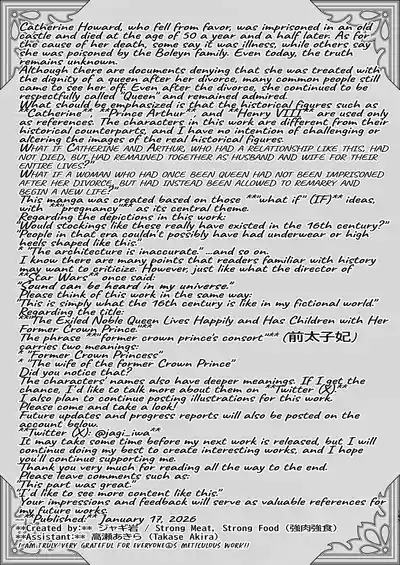 Catherine Howard, who fell from favor, was imprisoned in an old
castle and died at the age of 50 a year and a half later. As for
the cause of her death, some say it was illness, while others say
she was poisoned by the Boleyn family. Even today, the truth
remains unknown.
Although there are documents denying that she was created with
the dignity of a queen after her divorce, many common people still
came to see her off. Even after the divorce, she continued to be
respectfully called "Queen" and remained admired.
What should be emphasized is that the historical figures such as
**"Catherine"**, **"Prince Arthur"**, and **"Henry VIII"** are used only
as references. The characters in this work are different from their
historical counterparts, and I have no intention of challenging or
altering the images of the real historical figures.
WHAT IF CATHERINE AND ARTHUR, WHO HAD A RELATIONSHIP LIKE THIS, HAD
NOT DIED, BUT HAD REMAINED TOGETHER AS HUSBAND AND WIFE FOR THEIR
ENTIRE LIVES?"
WHAT IF A WOMAN WHO HAD ONCE BEEN QUEEN HAD NOT BEEN IMPRISONED
AFTER HER DIVORCE, BUT HAD INSTEAD BEEN ALLOWED TO REMARRY AND
BEGIN A NEW LIFE?"
This manga was created based on those **"what if" (IF)** ideas,
with **pregnancy** as its central theme.
Regarding the depictions in this work:
"Would stockings like these really have existed in the 16th century?"
"People in that era couldn't possibly have had underwear or high
heels shaped like this."
* "The architecture is inaccurate." ...and so on.
I know there are many points that readers familiar with history
may want to criticize. However, just like what the director of
*Star Wars* once said:
"Sound can be heard in my universe."
Please think of this work in the same way:
"This is simply what the 16th century is like in my fictional world."
Regarding the title:
**"The Exiled Noble Queen Lives Happily and Has Children with Her
Former Crown Prince"**
The phrase **"former crown prince's consort"** (前太子妃)
carries two meanings:
* "Former Crown Princess"
* "The wife of the former Crown Prince"
Did you notice that?
The characters' names also have deeper meanings. If I get the
chance, I'd like to talk more about them on **Twitter (X)**.
I also plan to continue posting illustrations for this work.
Please come and take a look!
Future updates and progress reports will also be posted on the
account below.
**Twitter (X): @jagi_iwa**
It may take some time before my next work is released, but I will
continue doing my best to create interesting works, and I hope
you'll continue supporting me.
Thank you very much for reading all the way to the end.
Please leave comments such as:
"This part was great."
"I'd like to see more content like this."
Your impressions and feedback will serve as valuable references for
my future works.
**Published:** January 17, 2026
**Created by:** ジャギ岩 / Strong Meat, Strong Food (強肉強食)
**Assistant:** 高瀬あきら (Takase Akira)
I AM TRULY VERY GRATEFUL FOR EVERYONE'S METICULOUS WORK!!